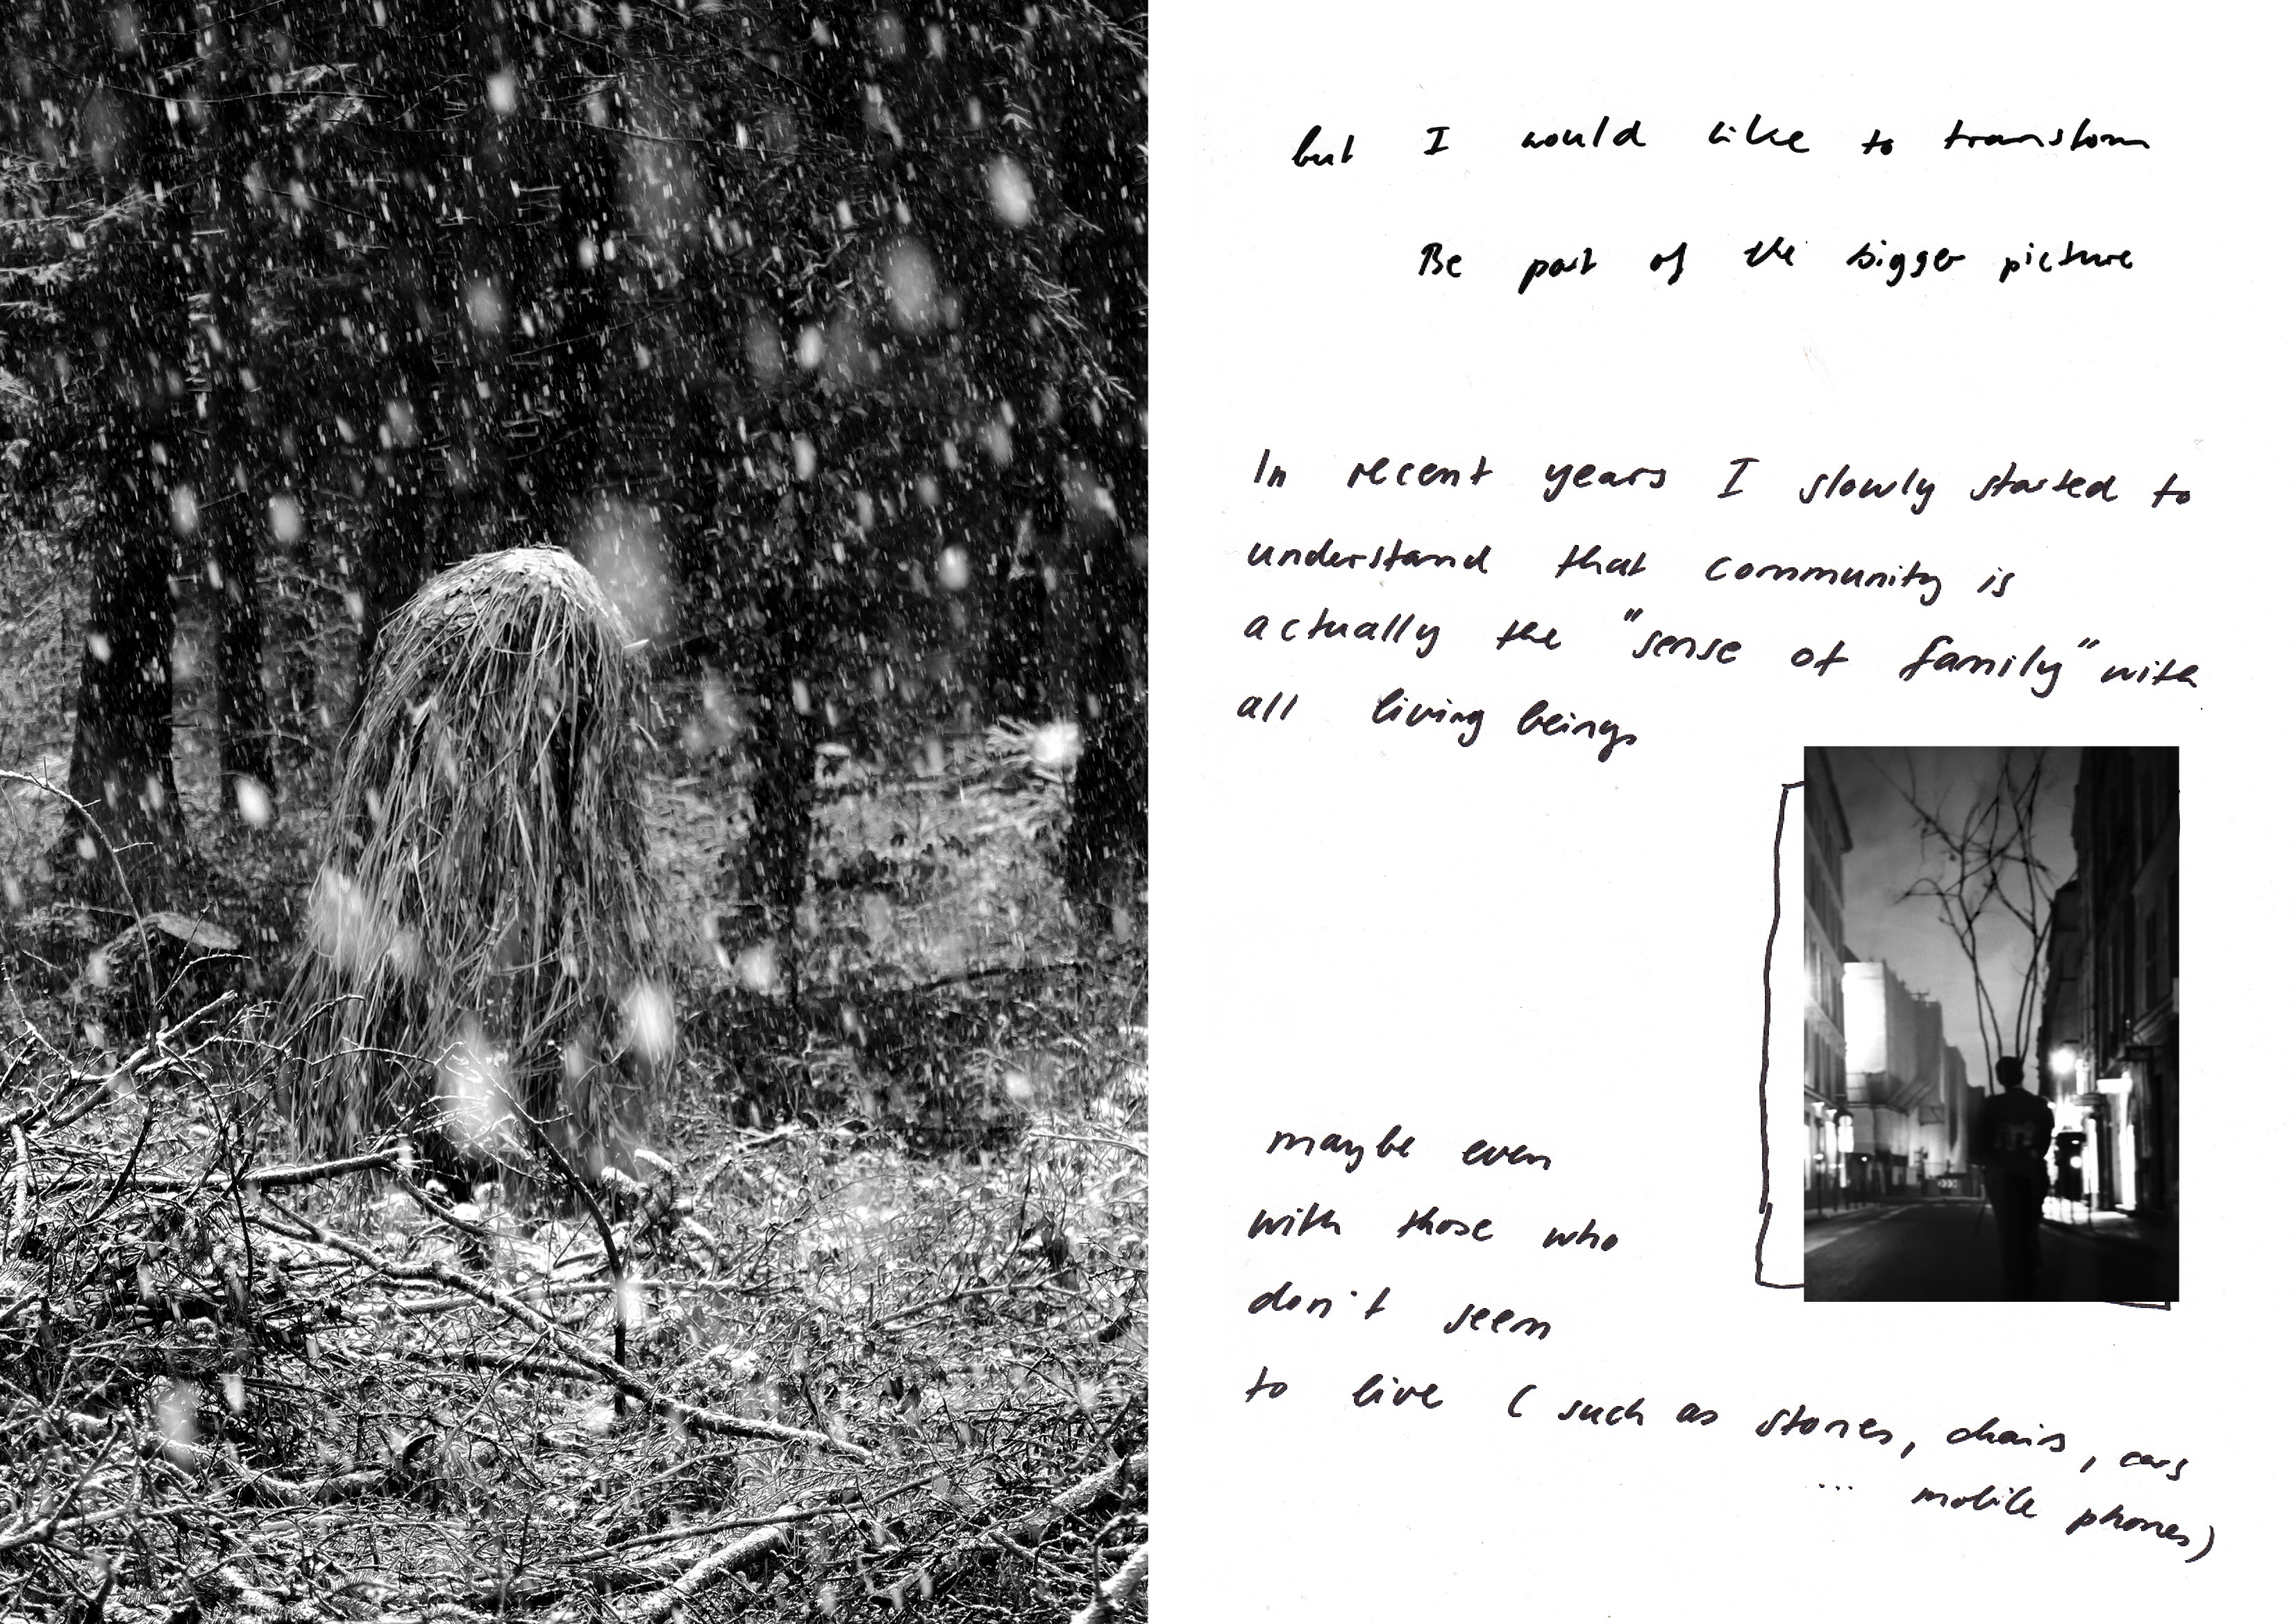 but I would like to transform
Be part of the bigger picture
In recent years I slowly started to
understand that community is
actually the "sense of family" with
all living beings
maybe even
with those who
don't seem
to live (such as stones, chairs, cars
... mobile phones)